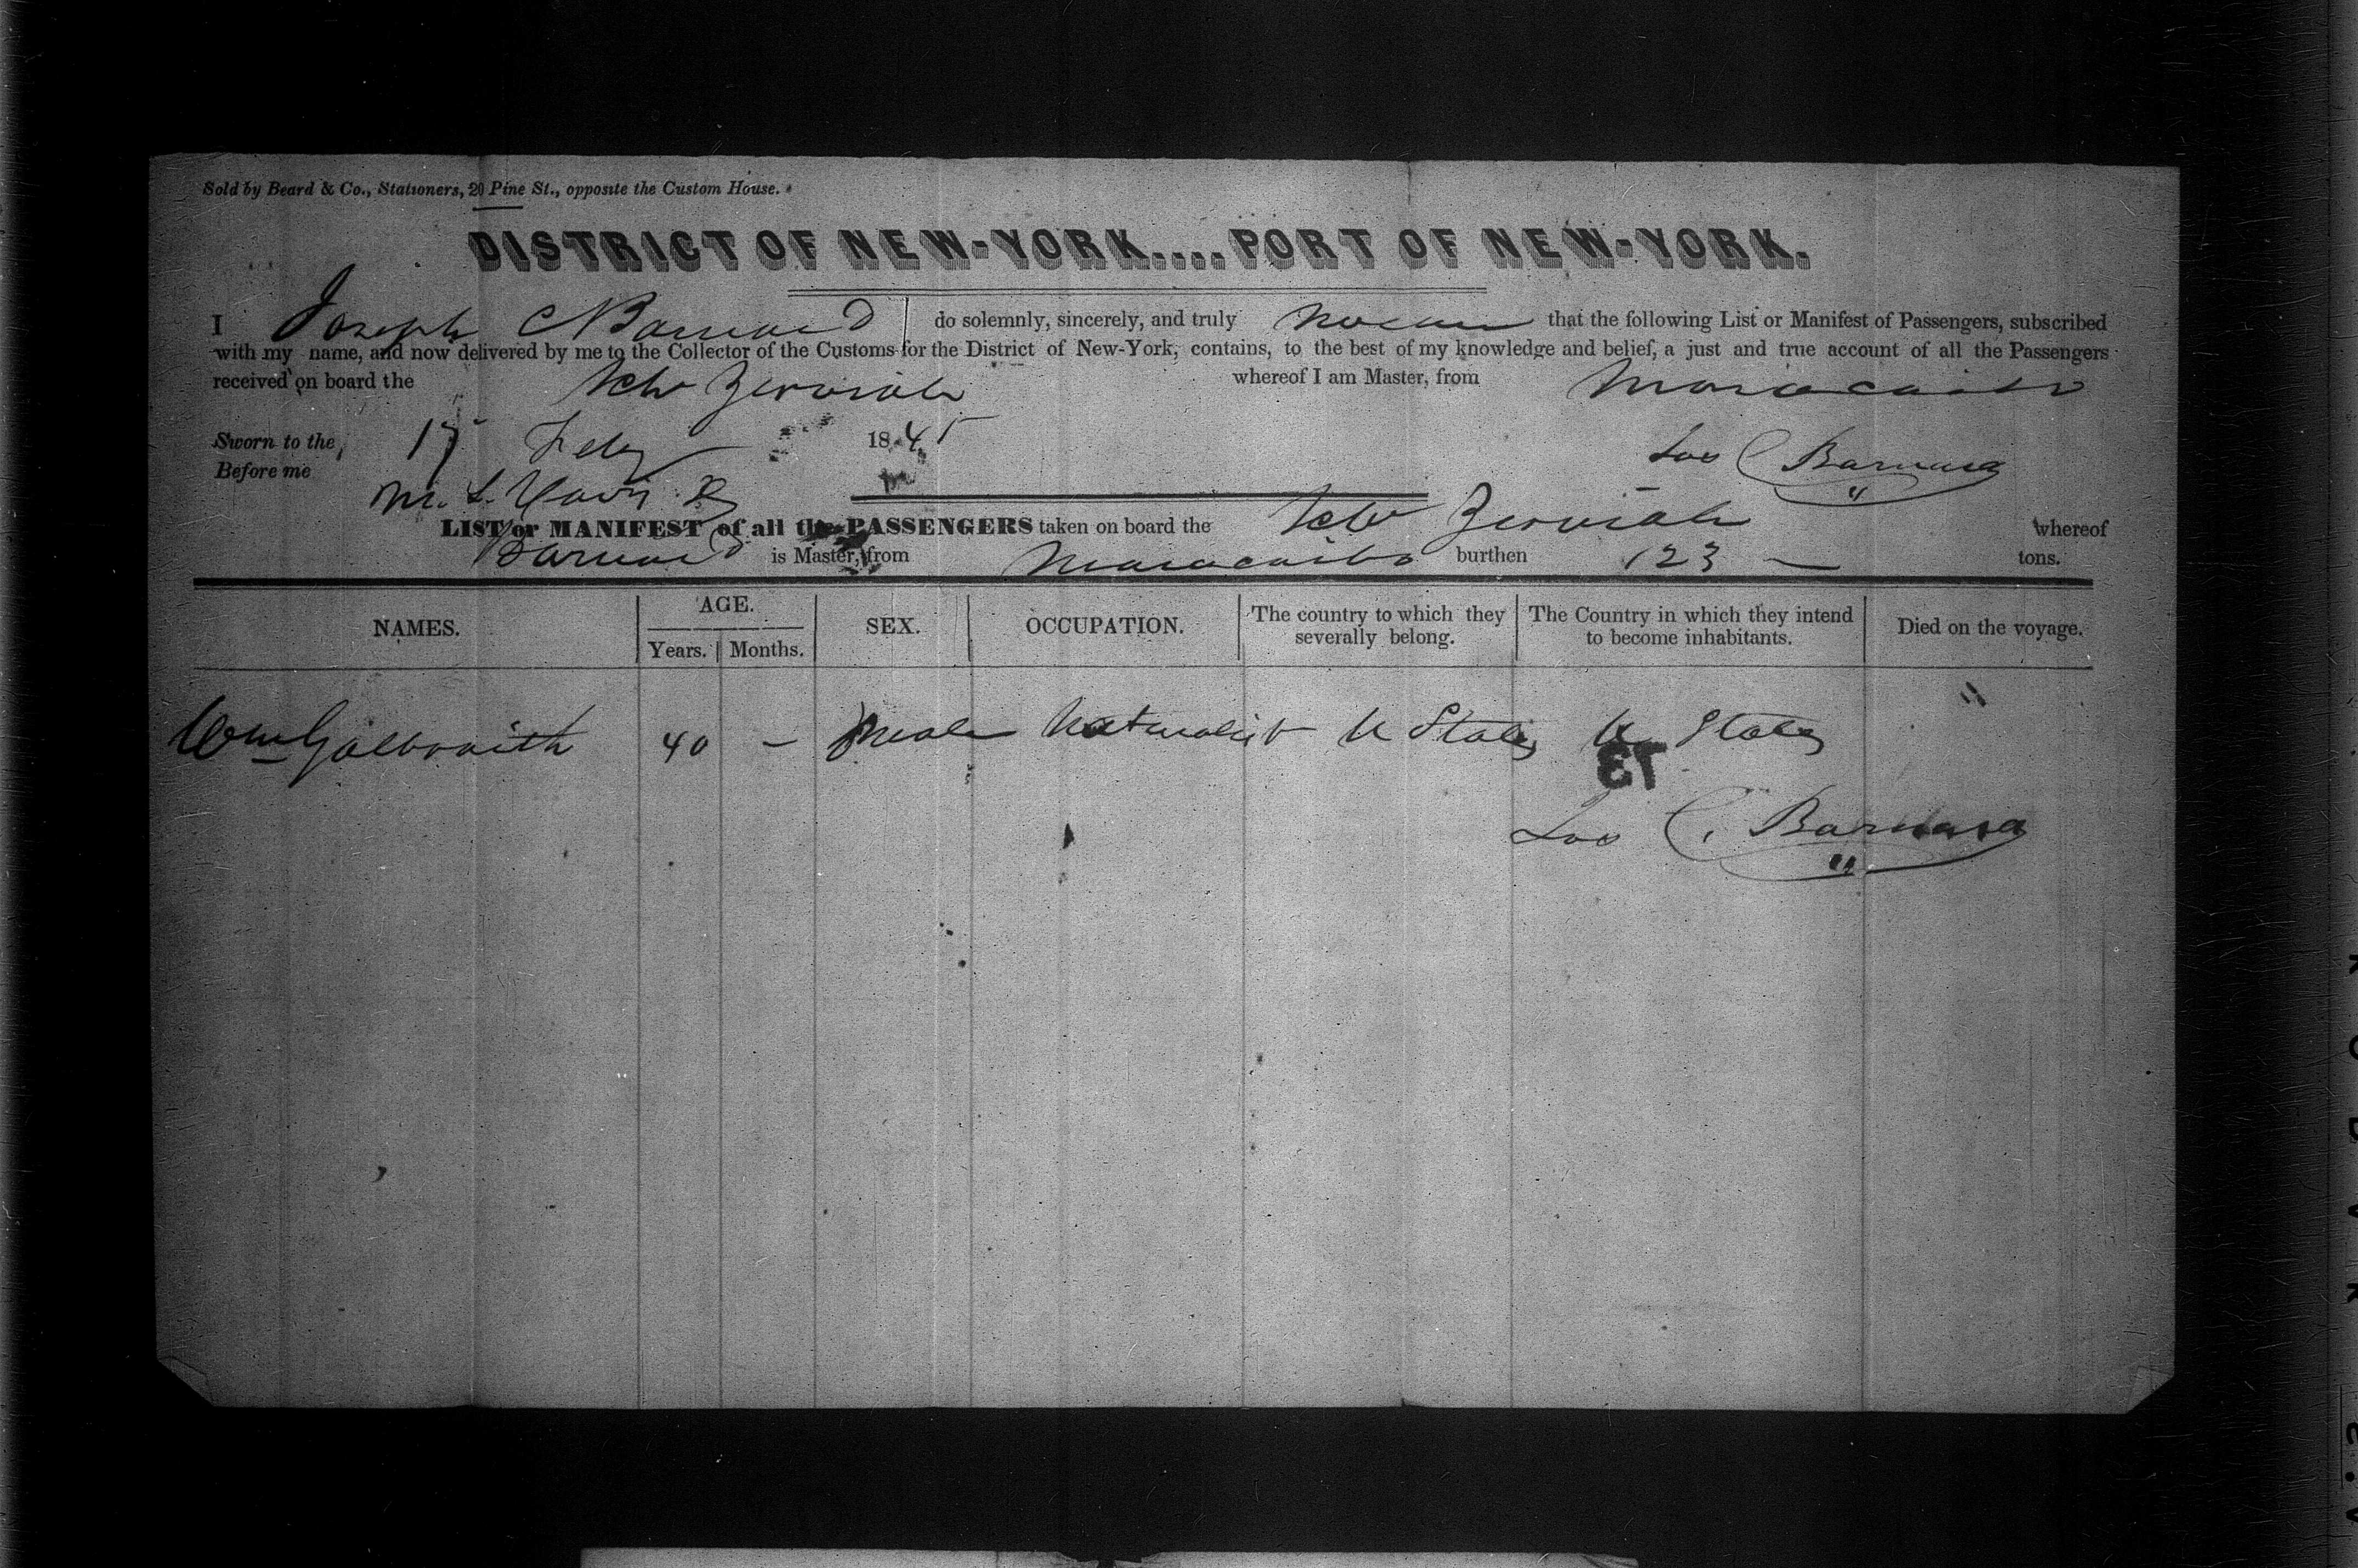 Sold by Beard & Co., Stationers, 20 Pine St., opposite the Custom House.
DISTRICT OF NEW-YORK....PORT OF NEW-YORK.
I Joseph C Barnard do solemnly, sincerely, and truly swear that the following List or Manifest of Passengers, subscribed
with my name, and now delivered by me to the Collector of the Customs for the District of New-York, contains, to the best of my knowledge and belief, a just and true account of all the Passengers
received on board the Schr Zerviah whereof I am Master, from Maracaibo
Sworn to the 17 Feby 1845 Jos C Barnard
Before me
M. L. Davis
LIST or MANIFEST of all the PASSENGERS taken on board the Schr Zerviah whereof
Barnard is Master, from Maracaibo burthen 123 — tons.
NAMES. AGE. Years. Months. SEX. OCCUPATION. The country to which they severally belong. The Country in which they intend to become inhabitants. Died on the voyage.
Wm Galbraith 40 – Male Naturalist U States U States "
13
Jos C. Barnard